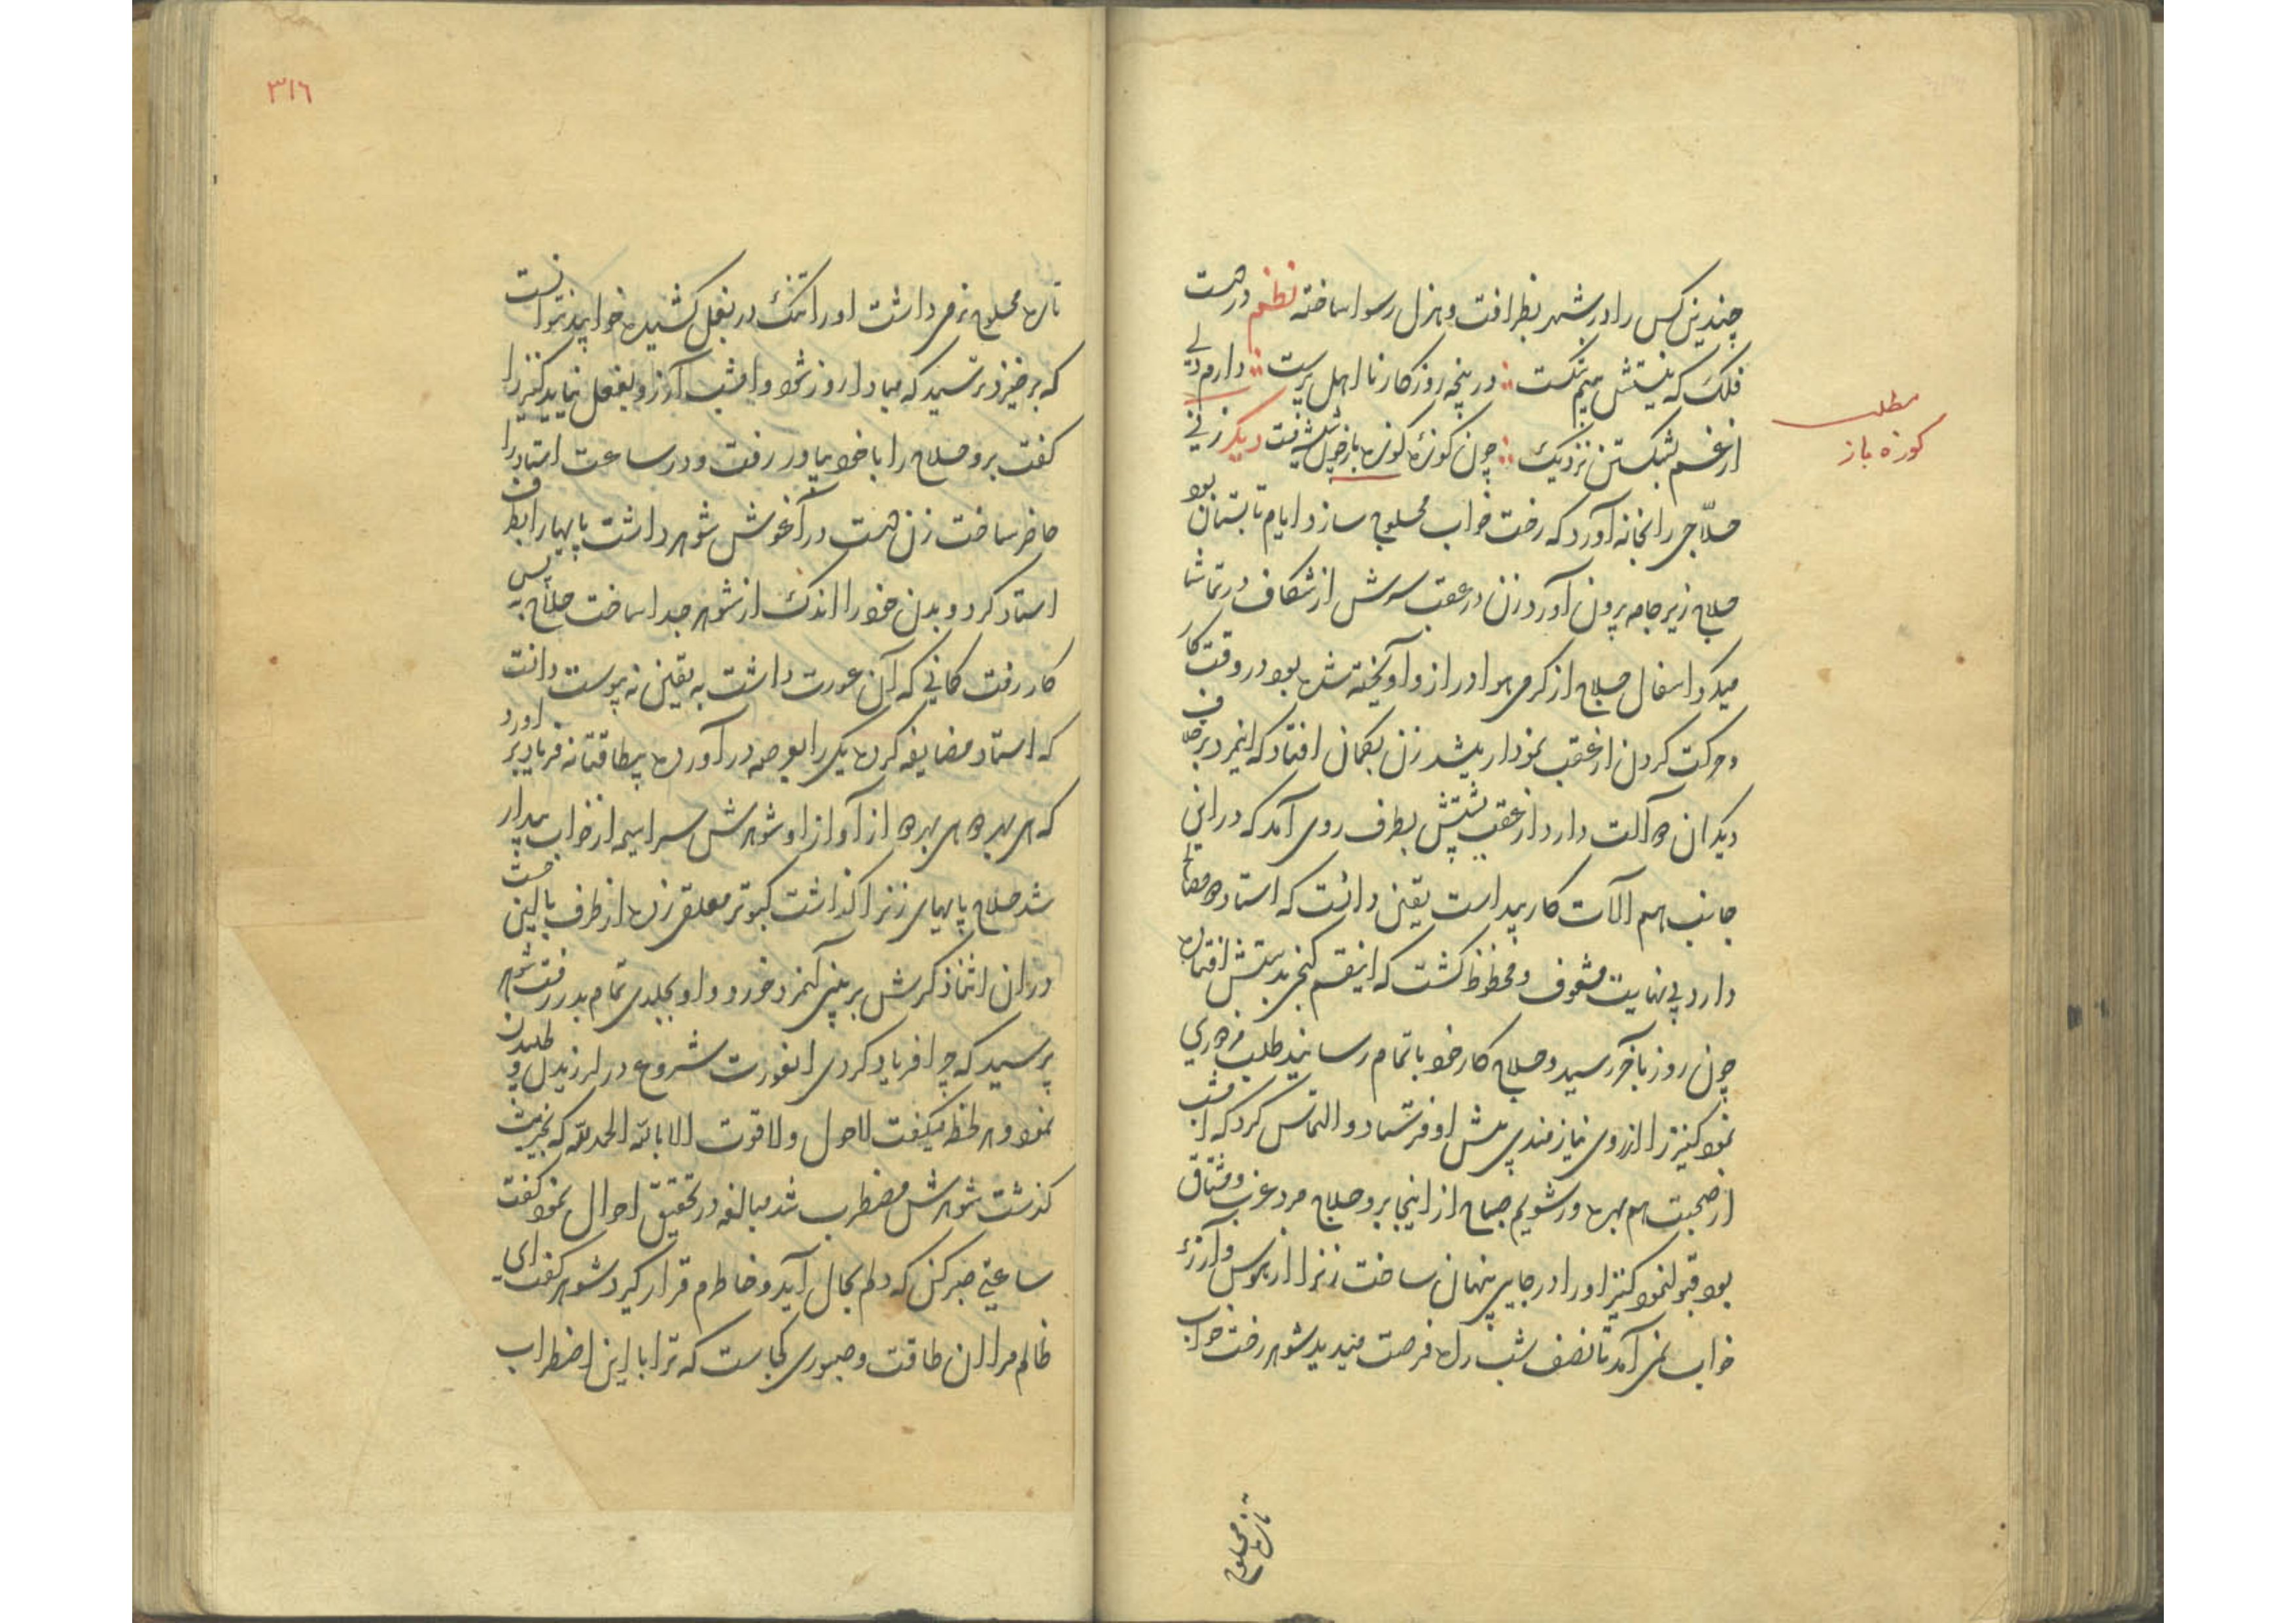 چندین کس را در شهر بظرافت و هزل رسوا ساخته نظم در دست
فلک که نیستش بیم شکست در پنجه روزکار نا اهل پرست دارم دلی
از غم بشکستن نزدیک چون کوزهٔ کوزه باز دیکر زنی
مطلب
کوزه باز
حلّاجی را بخانه آورد که رخت خواب محلوج سازد ایام تابستان بود
حلاج زیر جامه برون آورد زن در عقب سرش از شکاف در تماشا
میکرد اسفال حلاج از کرمی هوا دراز و آویخته شده بود در وقت کار
و حرکت کردن از عقب نمودار میشد زن بکمان افتاد که اینمرد بر خلاف
دیکران دو آلت دارد از عقب پشتش بطرف روی آمد که در این
جانب هم آلات کار پیداست یقین دانست که استاد دو مصالح
دارد بی نهایت مشعوف و محظوظ کشت که اینقسم کنجی بدستش افتاده
چون روز بآخر رسید و حلاج کار خود باتمام رسانید طلب مزدوری
نمود کنیز را از روی نیازمندی پیش او فرستاد و التماس کرد که امشب
از صحبت هم بهره ور شویم صباح از اینجا برو حلاج مرد عزب و مشتاق
بود قبول نمود کنیز او را در جایی پنهان ساخت زنرا از هوس و آرزو
خواب نمی آمد تا نصف شب راه فرصت میدید شوهر رخت خواب
تازه محلوج
٣١٦
تازه محلوج نرمی داشت او را تنک در بغل کشیده خوابید نتوانست
که برخیزد ترسید که مبادا روز شود و امشب آرزو بفعل نیاید کنیز را
کفت برو حلاج را با خود بیاور رفت و در ساعت استاد را
حاضر ساخت زن دست در آغوش شوهر داشت پایها را بطرف
استاد کرد و بدن خود را اندک از شوهر جدا ساخت حلاج پس
کار رفت کمانی که آن عورت داشت به یقین نه پیوست دانست
که استاد مضایقه کرده یکی را بعرصه در آورده بیطاقتانه فریاد بر آورد
که ای هر دو ای هر دو از آواز او شوهرش سراسیمه از خواب بیدار
شد حلاج پایهای زنرا کذاشت کبوتر معلق زده از طرف بالین جست
در ان اثنا ذکرش بر بینی آنمرد خورد و او بجلدی تمام بدر رفت شوهر
پرسید که چرا فریاد کردی انعورت شروع در لرزیدن و طلپیدن
نمود و هر لحظه میکفت لاحول ولاقوت الا بالله الحمدلله که بخیریت
کذشت شوهرش مضطرب شد مبالغه در تحقیق احوال نمود کفت
ساعتی صبر کن که دلم بحال آید و خاطرم قرار کیرد شوهر کفت ای
ظالم مرا ان طاقت و صبوری کجاست که ترا با این اضطراب